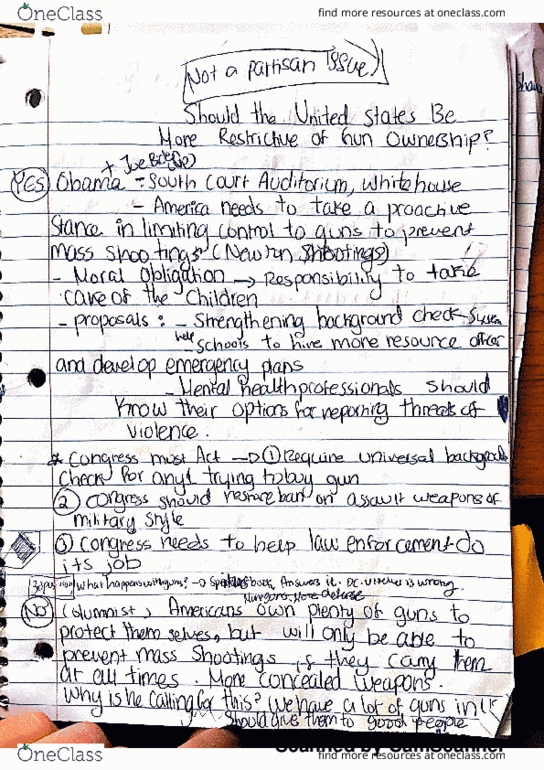 OneClass
find more resources at oneclass.com
Not a partisan Issue
Should the United States Be
More Restrictive of Gun Ownership?
+ Joe
YES Obama - South Court Auditorium, Whitehouse
- America needs to take a proactive
Stance in limiting control to guns to prevent
mass shootings (Newton Shootings)
- Moral obligation → Responsibility to take
care of the Children
- proposals: - Strengthening background check System
help
- schools to hire more resource officer
and develop emergency plans
- Mental health professionals should
know their options for reporting threats of
violence.
* Congress must Act → ① Require universal background
check for any1 trying to buy gun
② congress should restore ban on assault weapons of
military style
③ congress needs to help law enforcement do
its job
what happens with guns? → book, Answers it. DC v Heller is wrong.
guns, More defense
No (columnist) Americans own plenty of guns to
protect themselves, but will only be able to
prevent mass shootings if they carry them
at all times. More concealed weapons.
Why is he calling for this? We have a lot of guns in US
Should give them to good people
Scanned by CamScanner
OneClass
find more resources at oneclass.com